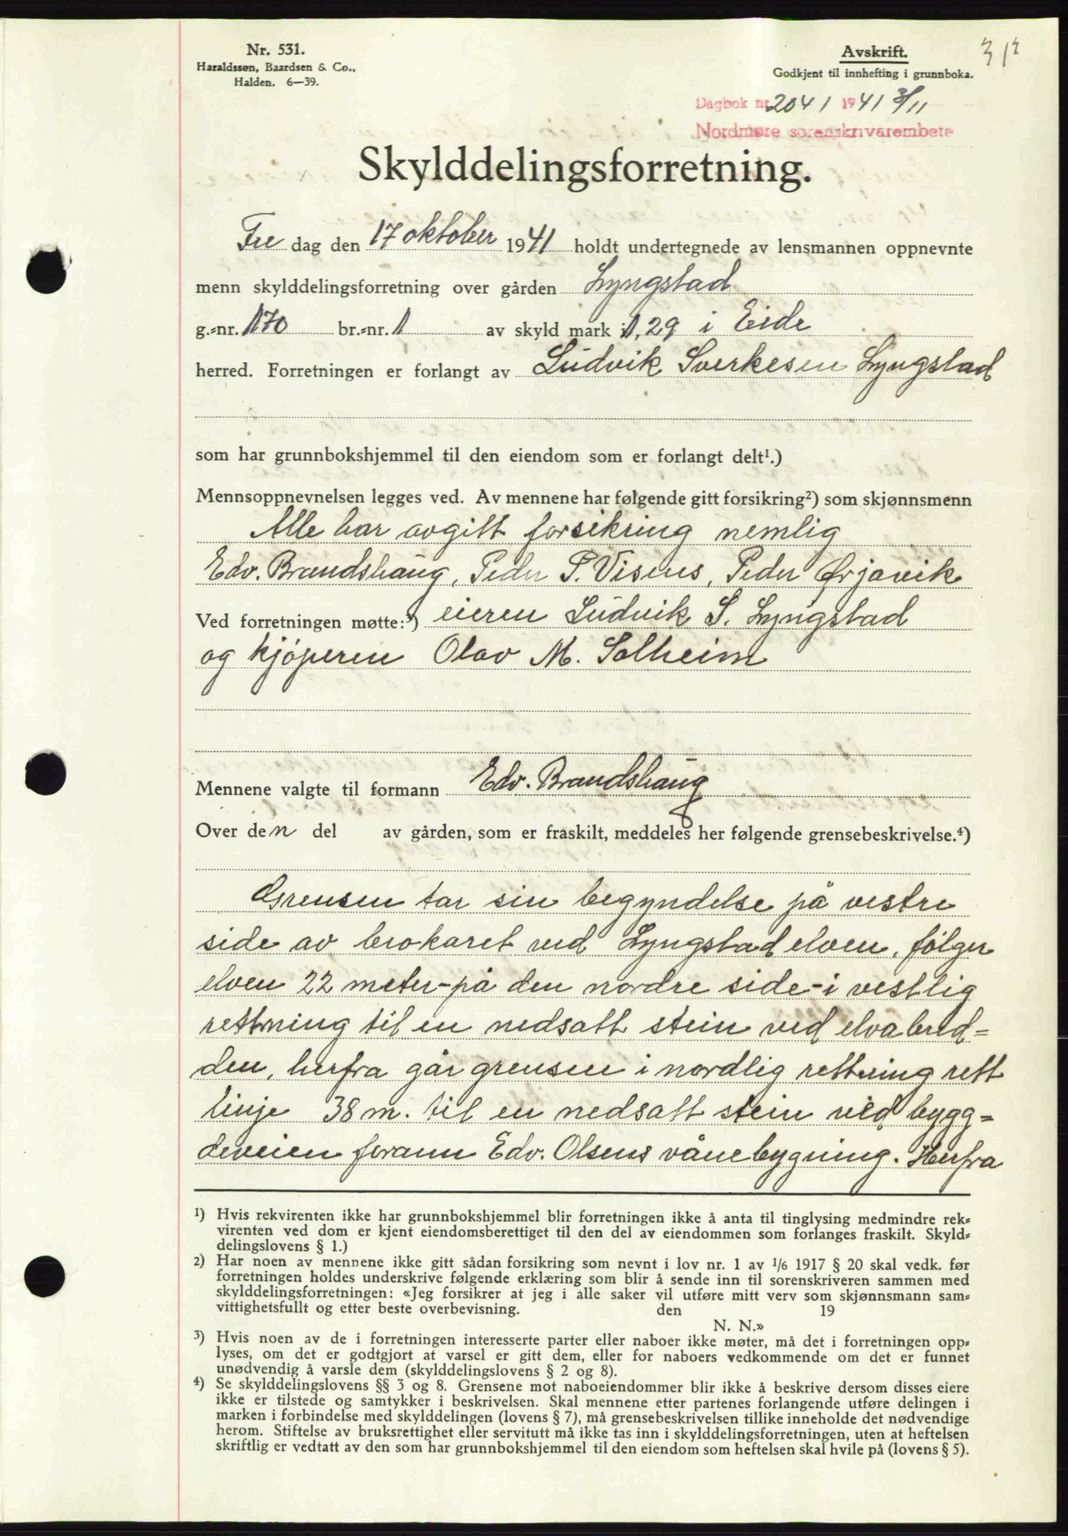 Nr. 531.
Haraldssøn, Baardsen & Co.,
Halden. 6—39.
Avskrift. 312
Godkjent til innhefting i grunnboka.
Dagbok nr. 2041 1941 3/11
Nordmøre sorenskrivarembete
Skylddelingsforretning.
Fre dag den 17 oktober 1941 holdt undertegnede av lensmannen oppnevnte
menn skylddelingsforretning over gården Lyngstad
g.-nr. 170 br.-nr. 1 av skyld mark 1,29 i Eide
herred. Forretningen er forlangt av Ludvik Sverkesen Lyngstad
som har grunnbokshjemmel til den eiendom som er forlangt delt¹.)
Mennsoppnevnelsen legges ved. Av mennene har følgende gitt forsikring²) som skjønnsmenn
Alle har avgitt forsikring nemlig
Edv. Brandshaug, Peder P. Visnes, Peder Ørjavik
Ved forretningen møtte:³) eieren Ludvik S. Lyngstad
og kjøperen Olav M. Solheim
Mennene valgte til formann Edv. Brandshaug
Over den del av gården, som er fraskilt, meddeles her følgende grensebeskrivelse.⁴)
Grensen tar sin begyndelse på vestre
side av brokaret ved Lyngstadelven, følger
elven 22 meter-på den nordre side-i vestlig
rettning til en nedsatt stein ved elvabred=
den, herfra går grensen i nordlig rettning rett
linje 38 m. til en nedsatt stein ved bygg=
deveien forann Edv. Olsens vånebygning. Herfra
¹) Hvis rekvirenten ikke har grunnbokshjemmel blir forretningen ikke å anta til tinglysing medmindre rek-
virenten ved dom er kjent eiendomsberettiget til den del av eiendommen som forlanges fraskilt. Skyld-
delingslovens § 1.)
²) Har noen av mennene ikke gitt sådan forsikring som nevnt i lov nr. 1 av 1/6 1917 § 20 skal vedk. før
forretningen holdes underskrive følgende erklæring som blir å sende inn til sorenskriveren sammen med
skylddelingsforretningen: «Jeg forsikrer at jeg i alle saker vil utføre mitt verv som skjønnsmann sam-
vittighetsfullt og etter beste overbevisning. den 19
N. N.»
³) Hvis noen av de i forretningen interesserte parter eller naboer ikke møter, må det i forretningen opp-
lyses, om det er godtgjort at varsel er gitt dem, eller for naboers vedkommende om det er funnet
unødvendig å varsle dem (skylddelingslovens § 2 og 8).
⁴) Se skylddelingslovens §§ 3 og 8. Grensene mot naboeiendommer blir ikke å beskrive dersom disses eiere
ikke er tilstede og samtykker i beskrivelsen. Skal mennene etter partenes forlangende utføre delingen i
marken i forbindelse med skylddelingen (lovens § 7), må grensebeskrivelsen tillike inneholde det nødvendige
herom. Stiftelse av bruksrettighet eller servitutt må ikke tas inn i skylddelingsforretningen, uten at heftelsen
skriftlig er vedtatt av den som har grunnbokshjemmel til den eiendom som heftelsen skal hvile på (lovens § 5).